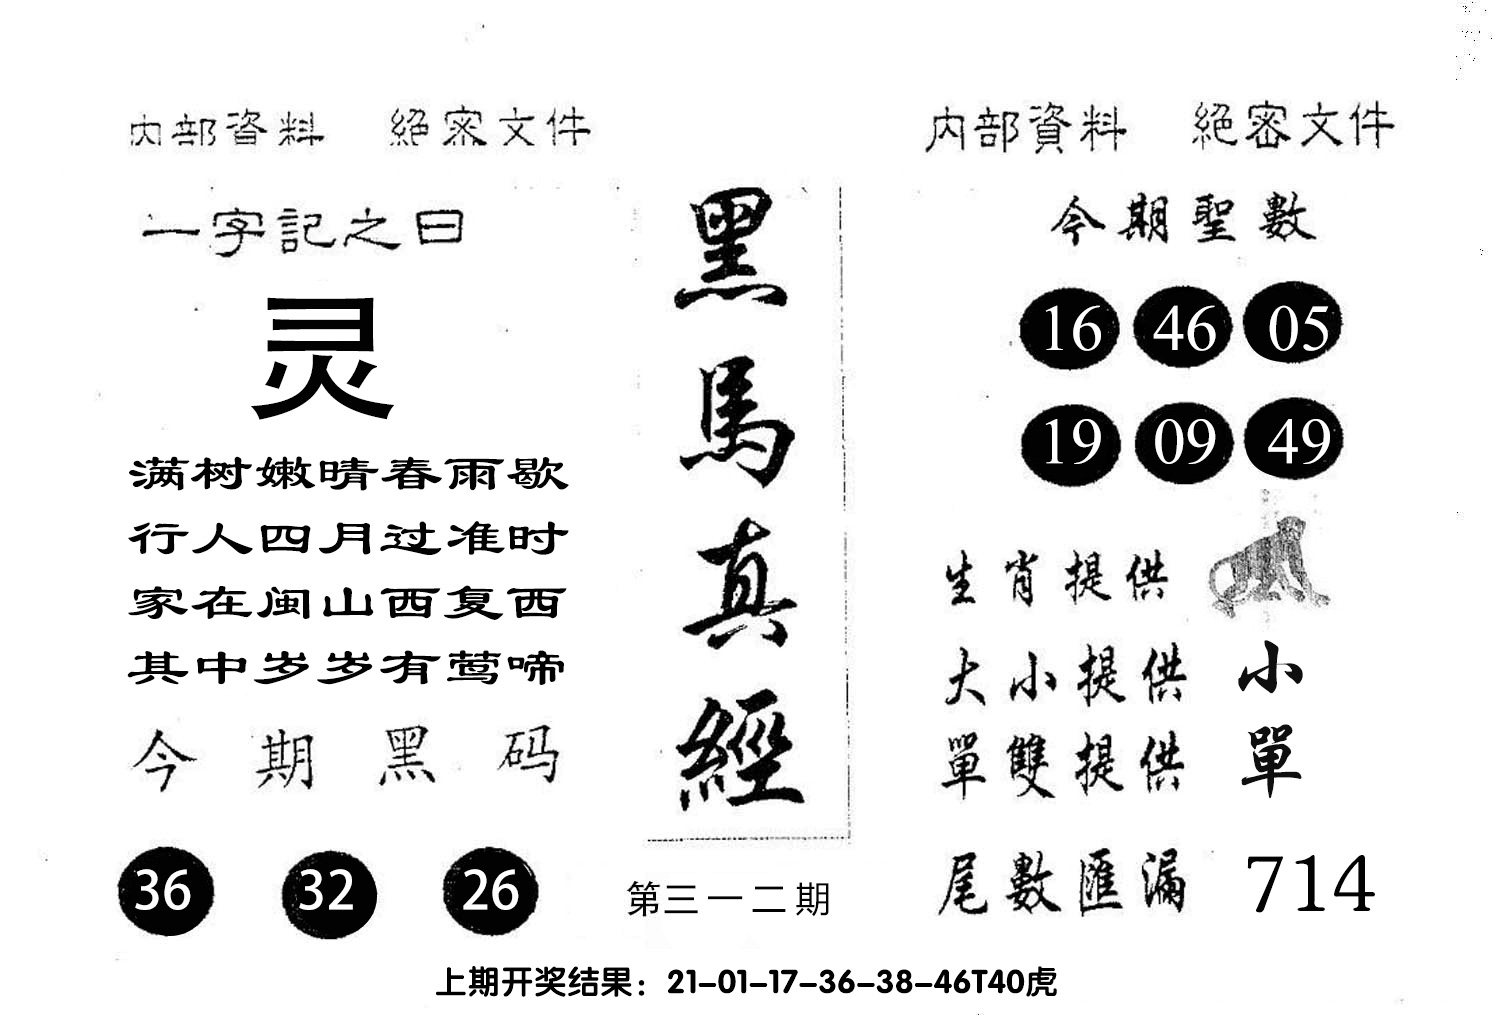 内部資料 絕密文件
一字記之曰
灵
满树嫩晴春雨歇
行人四月过准时
家在闽山西复西
其中岁岁有莺啼
今期黑码
36 32 26
黑馬真經
第三一二期
内部資料 絕密文件
今期聖數
16 46 05
19 09 49
生肖提供
大小提供 小
單雙提供 單
尾數匯漏 714
上期开奖结果：21-01-17-36-38-46T40虎